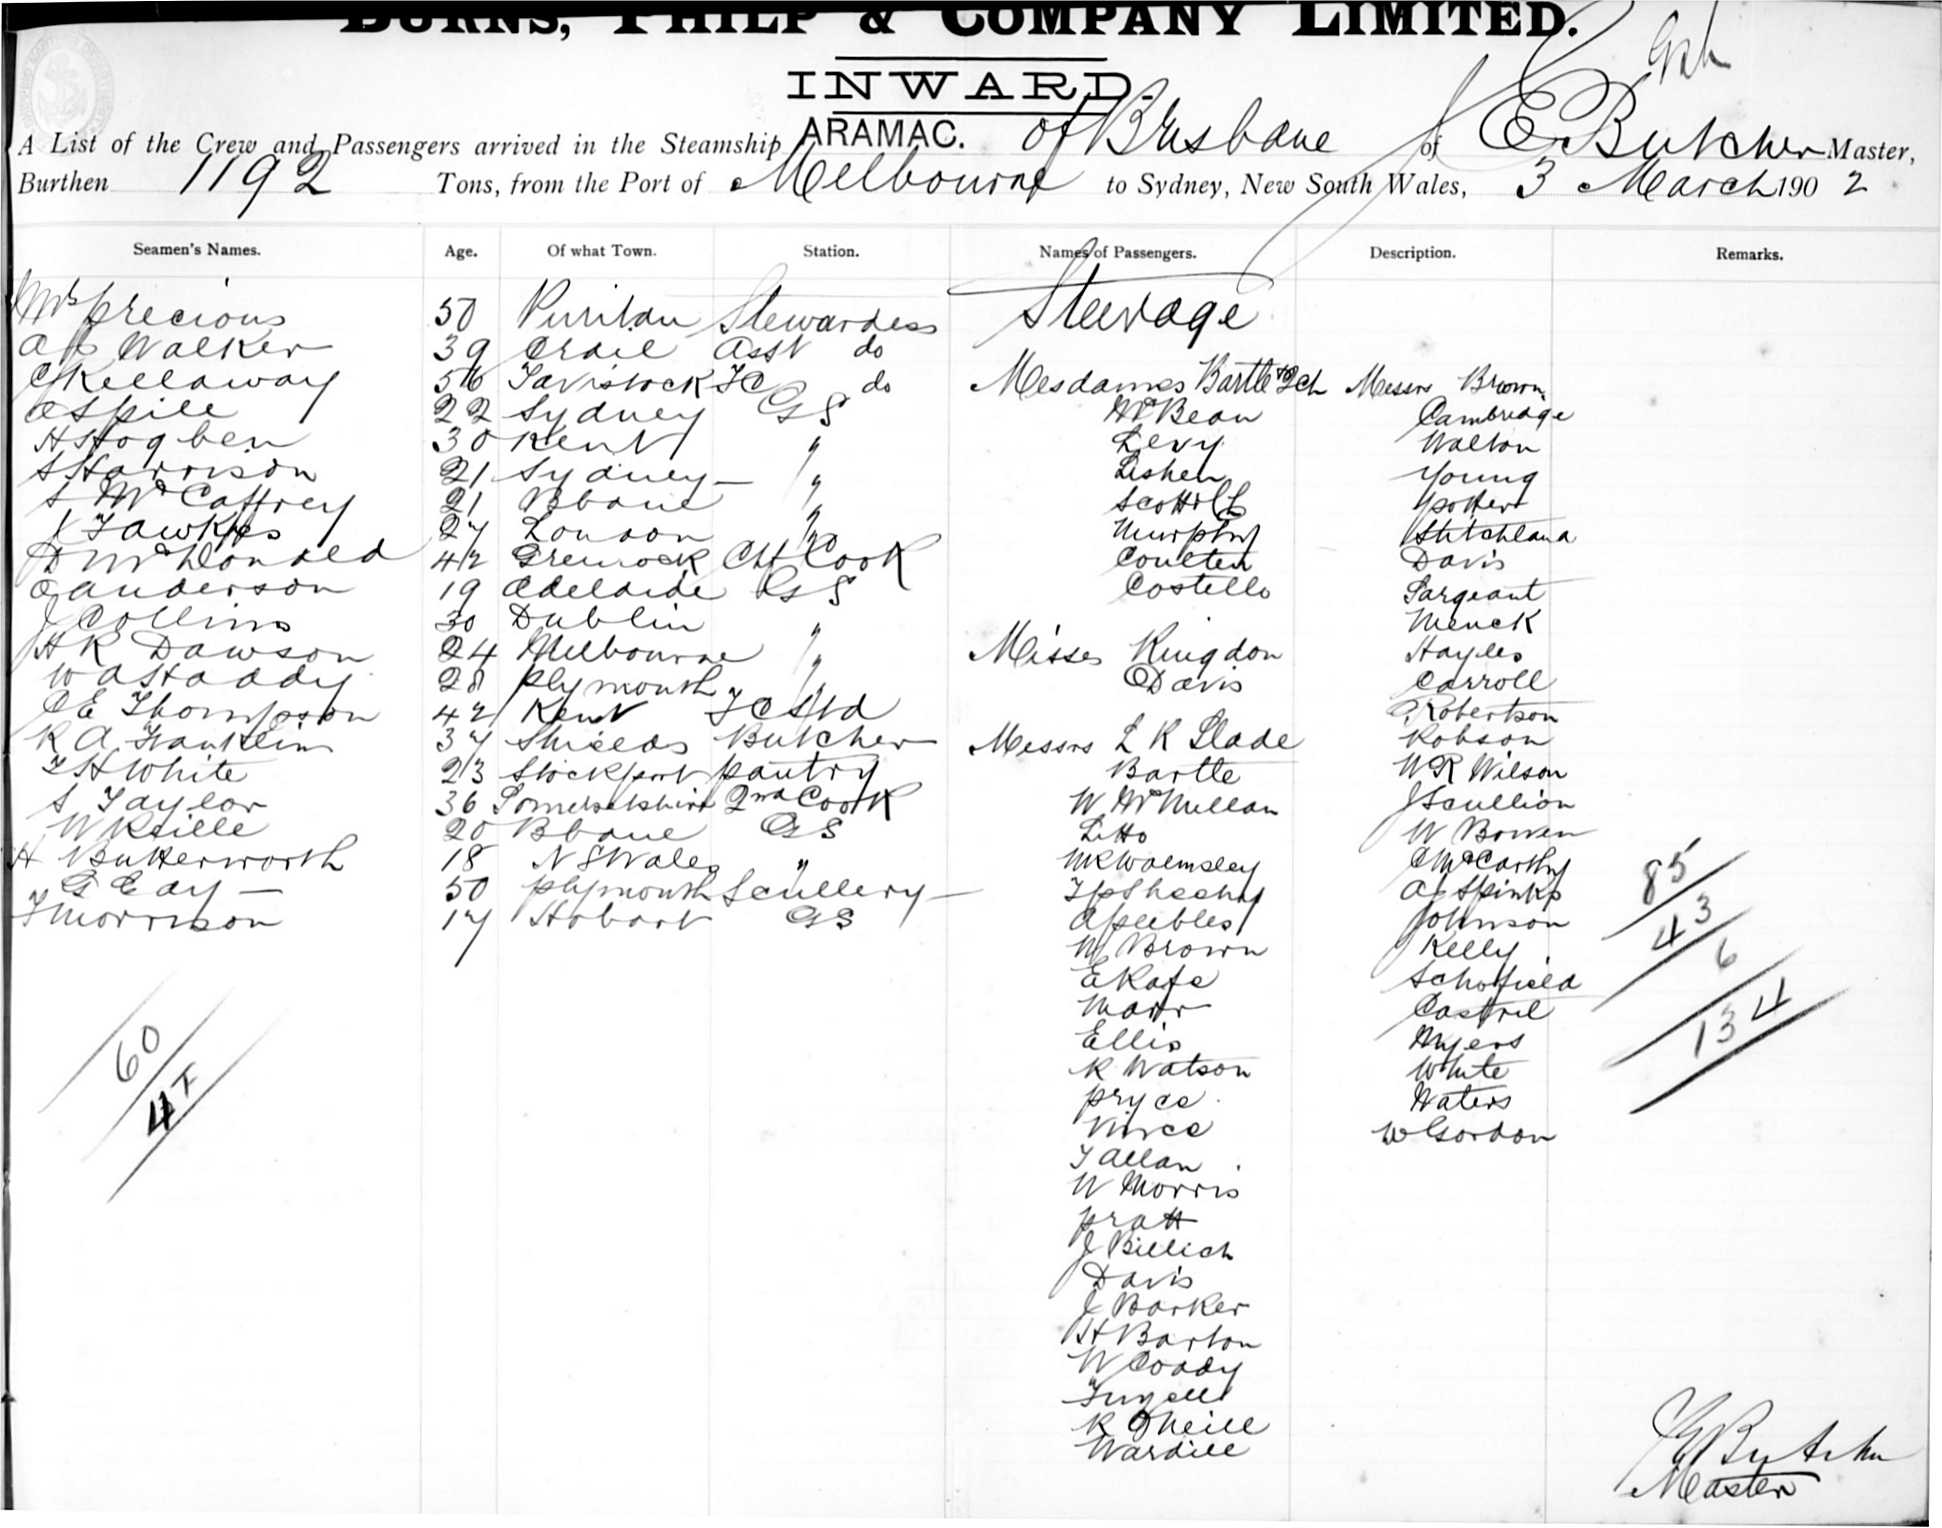 BURNS, PHILP & COMPANY LIMITED.
INWARD.
A List of the Crew and Passengers arrived in the Steamship ARAMAC. of Brisbane of E Butcher Master,
Burthen 1192 Tons, from the Port of Melbourne to Sydney, New South Wales, 3 March 1902
Seamen's Names. Age. Of what Town. Station. Names of Passengers. Description. Remarks.
Steerage
Mrs Precious 50 Puritan Stewardess
Walker 39 Crail Asst do
C Kellaway 56 Tavistock FC do
A Spile 22 Sydney GS
H Hogben 30 Kent "
S Harrison 21 Sydney "
S McCaffrey 21 Bbane "
J Fawkes 27 London "
D McDonald 42 Greenock Ch Cook
C Anderson 19 Adelaide GS
J Collins 30 Dublin
H R Dawson 24 Melbourne "
W A Haddy 28 Plymouth "
C E Thompson 42 Kent FC Std
R A Franklin 37 Shields Butcher
T H White 23 Stockport Pantry
S Taylor 36 Somersetshire 2nd Cook
W Keille 20 Bbane GS
H Butterworth 18 N S Wales "
G Eay 50 Plymouth Scullery
T Morrison 17 Hobart GS
60
41
Mesdames Bartle & 2 ch
McBean
Levy
Lishen
Scott & C
Murphy
Coulten
Costello
Misses Kingdon
Davis
Messrs L R Slade
Bartle
W McMullan
Litto
W R Walmsley
T P Sheehy
A Peebles
W Brown
E Kafe
Marr
Ellis
R Watson
Pryce
Vince
T Allan
W Morris
Pratt
J Billich
Davis
J Barker
H Barton
W Coady
R O'Neill
Wardill
Messrs Brown
Cambridge
Walton
Young
Potter
Stitchland
Davis
Sargeant
Menck
Hayles
Carroll
Robertson
Robson
W R Wilson
J Scullion
W Bowen
C McCarthy
A J Spinks
Johnson
Kelly
Schofield
Castril
Myers
White
Waters
W Gordon
85
43
6
134
E Butcher
Master